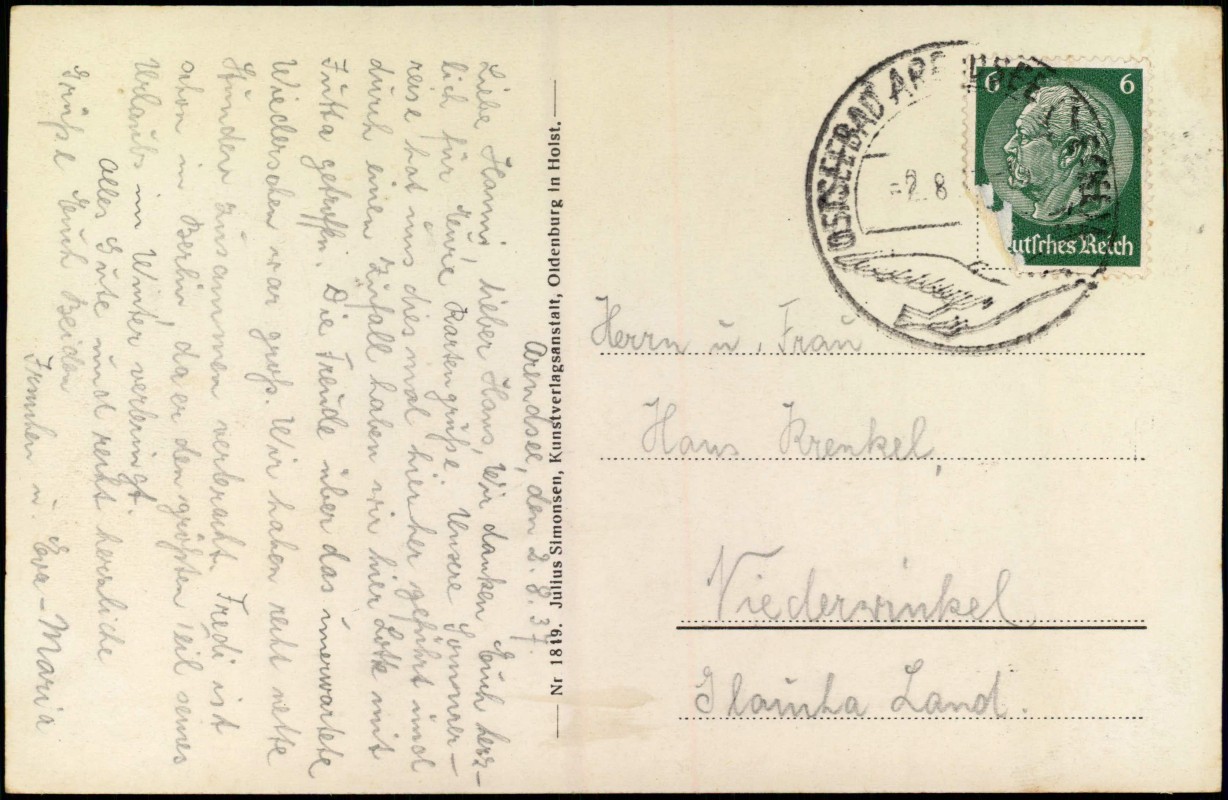 Arendsee, den 2. 8. 37.
Liebe Hanni, lieber Hans, Wir danken Euch herz-
lich für Eure Kartengrüße. Unsere Sommer-
reise hat uns diesmal hierher geführt und
durch einen Zufall haben wir hier Lotte mit
Jutta getroffen. Die Freude über das unerwartete
Wiedersehen war groß. Wir haben recht nette
Stunden zusammen verbracht. Fredi ist
schon in Berlin, da er den größten Teil seines
Urlaubs im Winter verbringt.
Alles Gute und recht herzliche
Grüße Euch Beiden
u. Eva-Maria
Nr 1819. Julius Simonsen, Kunstverlagsanstalt, Oldenburg in Holst.
OSTSEEBAD ARENDSEE
-2.8
6 6
utsches Reich
Herrn u. Frau
Hans Krenkel,
Niederwinkel
Glauchau Land.